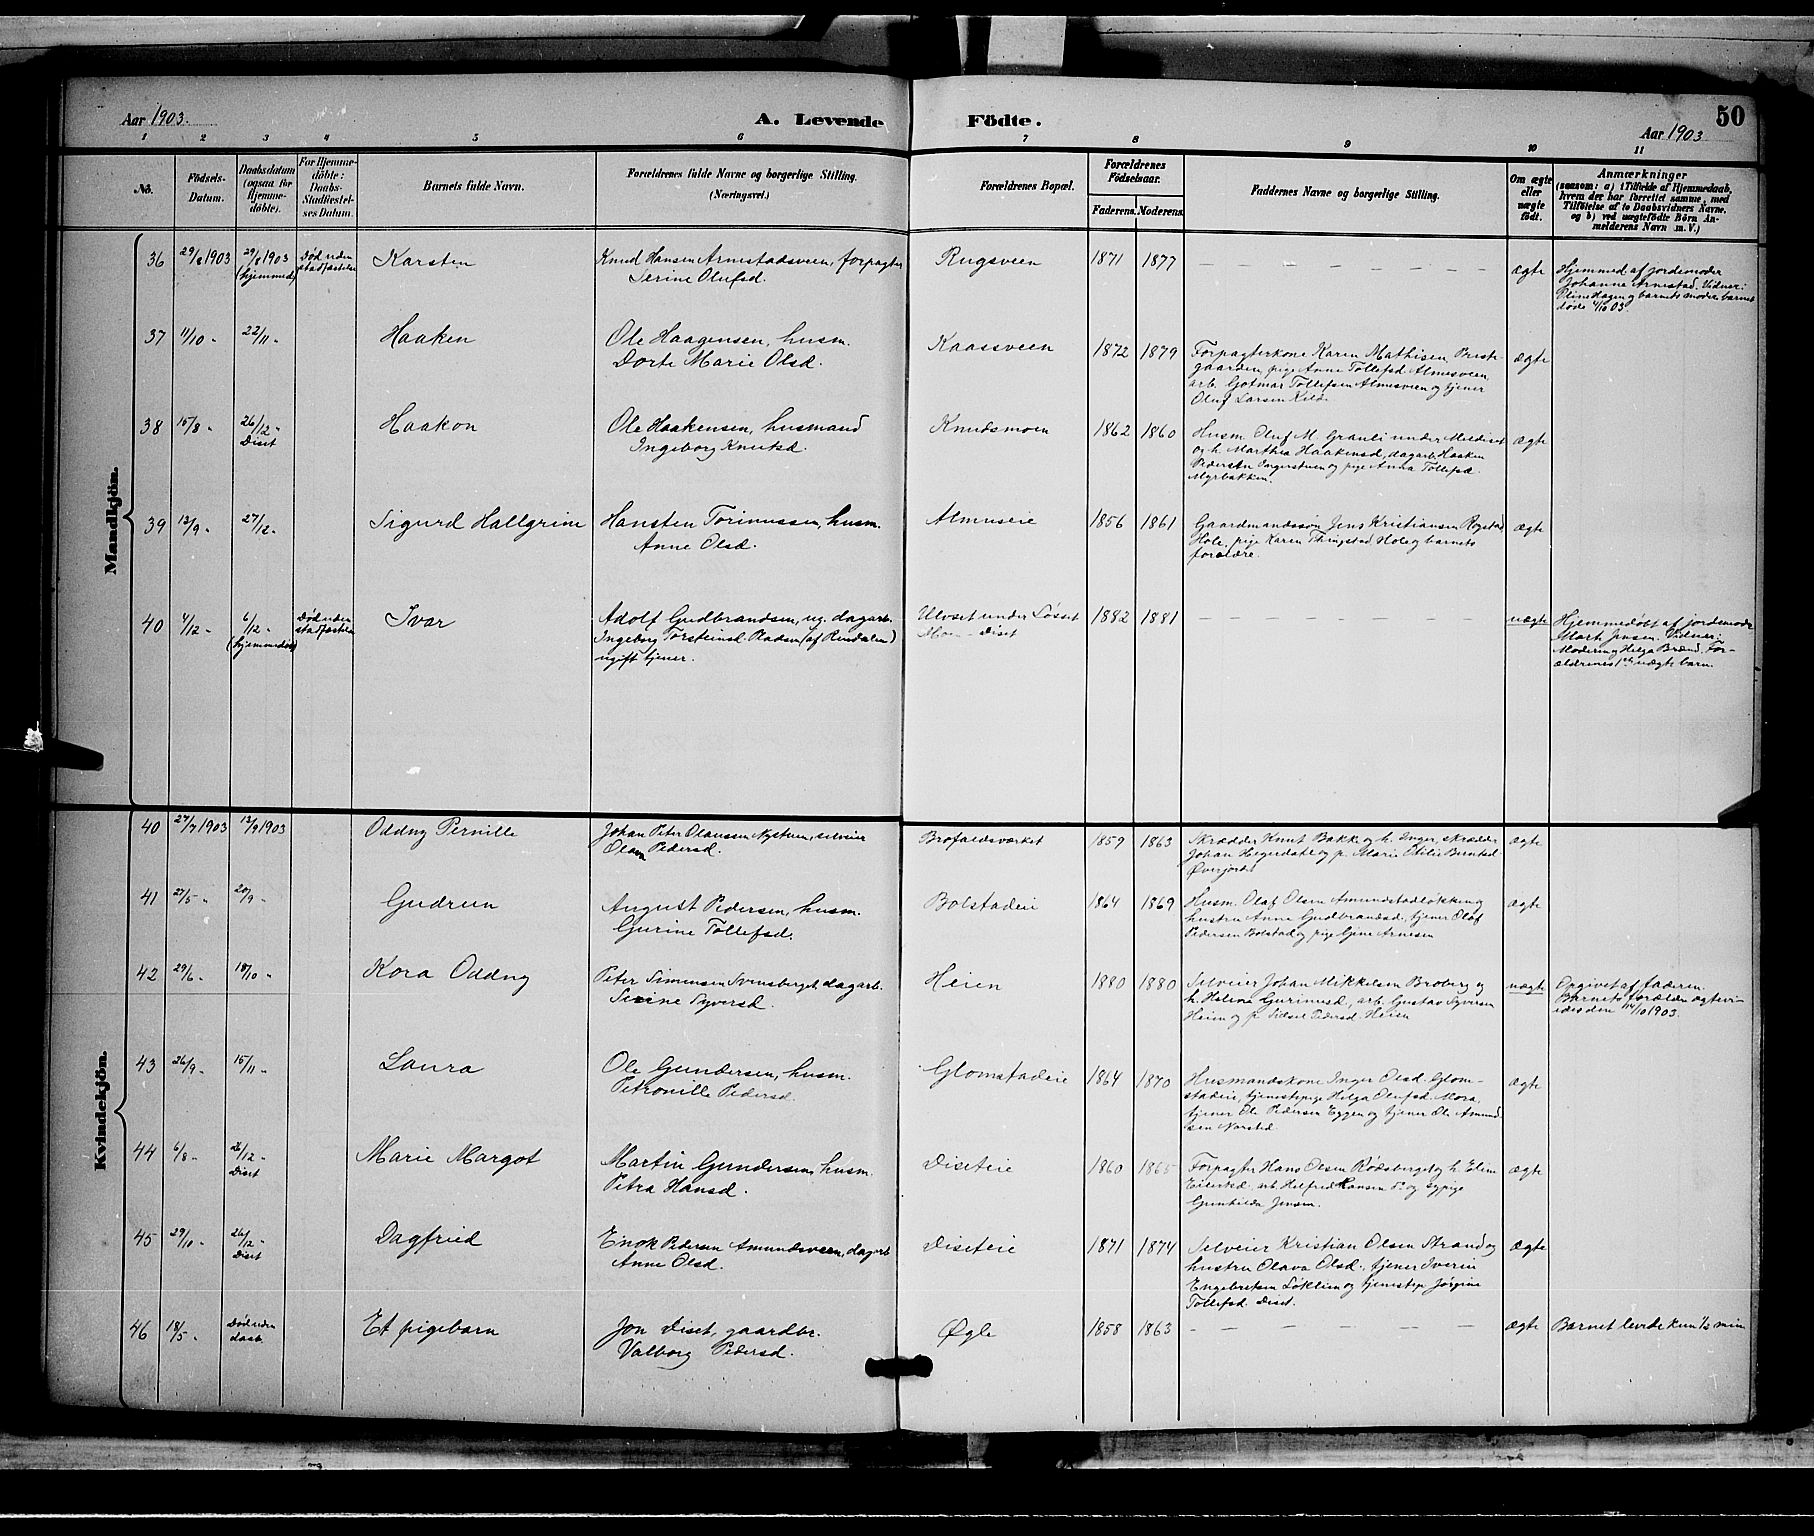 Aar 1903.
A. Levende Födte.
Aar 1903
50
1 2 3 4 5 6 7 8 9 10 11
No.
Födsels-
Datum.
Daabsdatum
(ogsaa for
Hjemme-
döbte).
For Hjemme-
döbte:
Daabs-
Stadfæstel-
ses Datum.
Barnets fulde Navn.
Forældrenes fulde Navne og borgerlige Stilling.
(Næringsvei.)
Forældrenes Bopæl.
Forældrenes
Födselsaar.
Faderens. Moderens.
Faddernes Navne og borgerlige Stilling.
Om ægte
eller
uægte
födt.
Anmærkninger
(saasom: a) i Tilfælde af Hjemmedaab,
hvem der har forrettet samme, med
Tilföielse af to Daabsvidners Navne,
og b) ved uægtefödte Börn An-
melderens Navn m. V.)
Mandkjön.
36 29/8 1903 29/8 1903 (hjemmed) Død uden stadfæstelse Karsten
Knud Hansen Arnestadsveen, forpagter
Serine Olufsd.
Rugsveen 1871 1877 — — — — — — — ægte
Hjemmed. af jordemoder
Johanne Arnestad. Vidner:
Oline Hagen og barnets moder. barnet
døde 4/10 03.
37 11/10 - 22/11 - Haaken
Ole Haagensen, husm.
Dorte Marie Olsd.
Kaassveen 1872 1879
Forpagterkone Karen Mathisen Prest-
gaarden, pige Anne Tollefsd. Almesveen,
arb. Gotmar Tollefsen Almesveen og tjener
Oluf Larsen Kilde
ægte
38 15/8 - 26/12 - Diset Haakon
Ole Haakensen, husmand
Ingeborg Knutsd.
Knudsmoen 1862 1860
Husm. Oluf M. Granli under Meldiset
og h. Marthea Haakensd., dagarb. Haaken
Pedersen Ingerstuen og pige Anna Tollefsd.
Myrbakken.
ægte
39 12/9 - 27/12 - Sigurd Hallgrim
Hansten Torinussen, husm.
Anne Olsd.
Almuseie 1856 1861
Gaardmandssøn Jens Kristiansen Rogstad
Hole, pige Karen Thingstad Hole og barnets
forældre.
ægte
40 4/12 - 6/12 - (hjemmedøbt) Død uden stadfæstelse Ivar
Adolf Gudbrandsen, ug. dagarb.
Ingeborg Torsteinsd. Pladsen (af Rendalen)
ugift tjener.
Ulvset under Løsset
Mo — Diset
1882 1881 — — — — — — — uægte
Hjemmedøbt af jordemoder
Marth. Jensen. Vidner:
Moderen og Helga Brænd. For-
ældrenes 1ste uægte barn.
Kvindekjön.
40 27/7 1903 13/9 1903 Oddny Pernille
Johan Peter Olaussen Nystuen, selveier
Olava Pedersd.
Brofaldsværket 1859 1863
Skrædder Knut Bakke og h. Inger, skrædder
Johan Hegerdahl og p. Marie Otilie Berntsd.
Øverjordet
ægte
41 27/5 - 20/9 - Gudrun
August Pedersen, husm.
Gurine Tollefsd.
Bolstadeie 1864 1869
Husm. Olaf Olsen Amundstadløkken og
hustru Anne Gudbrandsd., tjener Olaf
Pedersen Bolstad og pige Gine Arnesen
ægte
42 29/6 - 18/10 - Kora Oddny
Peter Simensen Svensberget, dagarb.
Serine Syversd.
Heien 1880 1880
Selveier Johan Mikkelsen Broberg og
h. Helene Gurinusd., arb. Gustav Syversen
Heien og p. Pedersd. Heien
uægte
Opgivet af faderen.
Barnets forældre ægtevi-
edes den 14/10 1903.
43 26/9 - 15/11 - Laura
Ole Gundersen, husm.
Petronille Pedersd.
Glomstadeie 1864 1870
Husmandskone Inger Olsd. Glom-
stadeie, tjenestepige Helga Olufsd. Mora,
tjener Ole Pedersen Eggen og tjener Ole Amund-
sen Norsted.
ægte
44 6/8 - 26/12 - Diset Marie Margot
Martin Gundersen, husm.
Petra Hansd.
Diseteie 1860 1865
Forpagter Hans Olsen Rødsberget og h. Eline
Eilertsd. arb. Helfred Hansen do og sypige
Gunhilda Jensen.
ægte
45 29/10 - 26/12 - Diset Dagfried
Enok Pedersen Amundsveen, dagarb.
Anne Olsd.
Diseteie 1871 1874
Selveier Kristian Olsen Strand og
hustru Olava Olsd., tjener Iverin
Engebretsen Løklien og tjenestep. Jørgine
Tollefsd. Diset.
ægte
46 18/5 - Død uden daab Et pigebarn
Jon Diset, gaardbr.
Valborg Pedersd.
Øgle 1858 1863 — — — — — — — ægte
Barnet levede kun 1/2 min